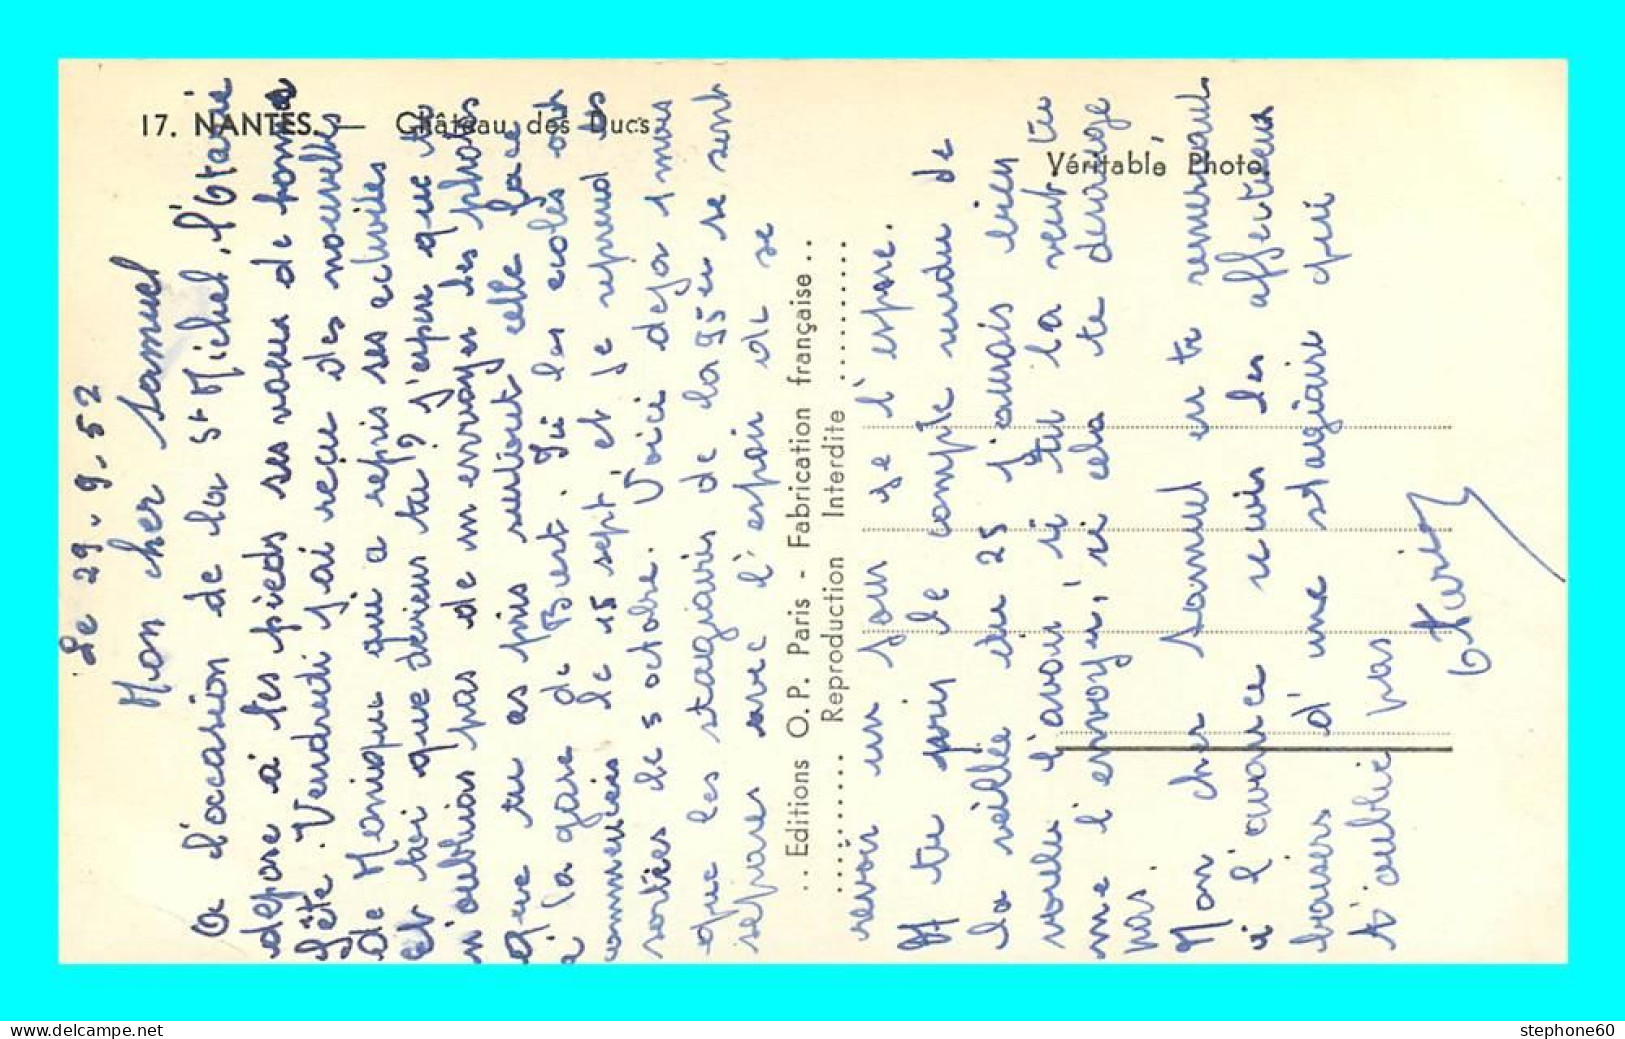 17. NANTES. — Château des Ducs
Véritable Photo.
Le 29-9-52
Mon cher Samuel
A l'occasion de la St Michel, l'Otarie
depose à tes pieds ses voeux de bonne
fête. Vendredi j'ai reçu des nouvelles
de Monique qui a repris ses activités
et toi que deviens tu? J'espère que tu
n'oublies pas de m'envoyer les photos
que tu as pris surtout celle face
à la gare de Brest. Ici les écoles ont
commencées le 15 sept, et je reprend les
sorties le 5 octobre. Voici deja 1 mois
que les stagiaires de la 95e se sont
separes avec l'espoir de se
revoir un jour je l'espere.
M tu pris le compte rendu de
la veillée du 25 j'aurais bien
voulu l'avoir, si tu la veut tu
me l'envoyer, si cela te derange
pas.
Mon cher Samuel en te remerciant
à l'avance recois les affectueux
baisers d'une stagiaire qui
t'oublie pas
Otarie
.. Editions O. P. Paris - Fabrication française ..
Reproduction Interdite
stephone60
www.delcampe.net